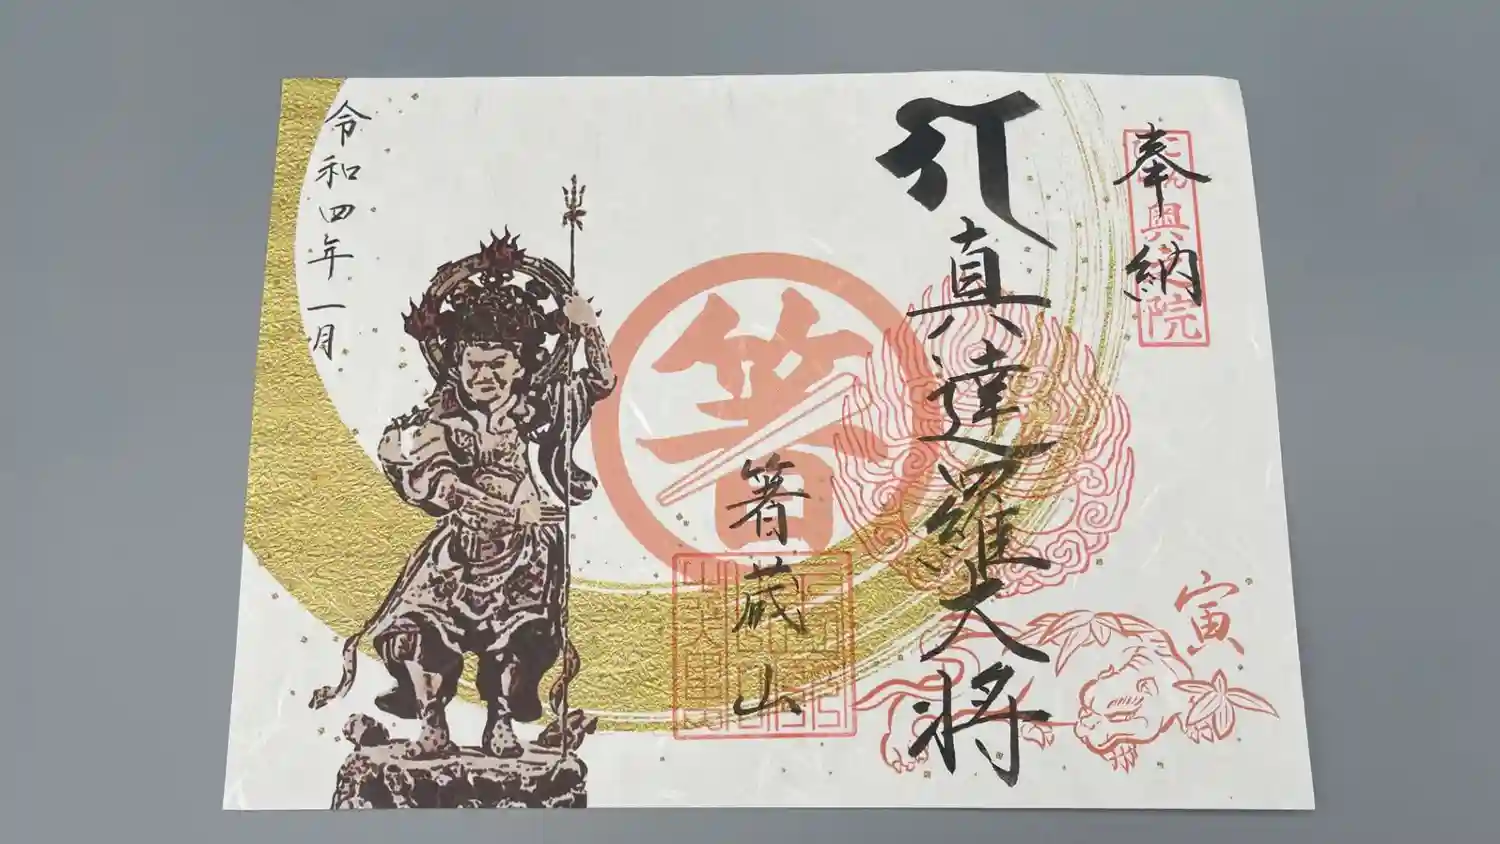 奉納
真達羅大将
寅
箸
箸蔵山
令和四年一月